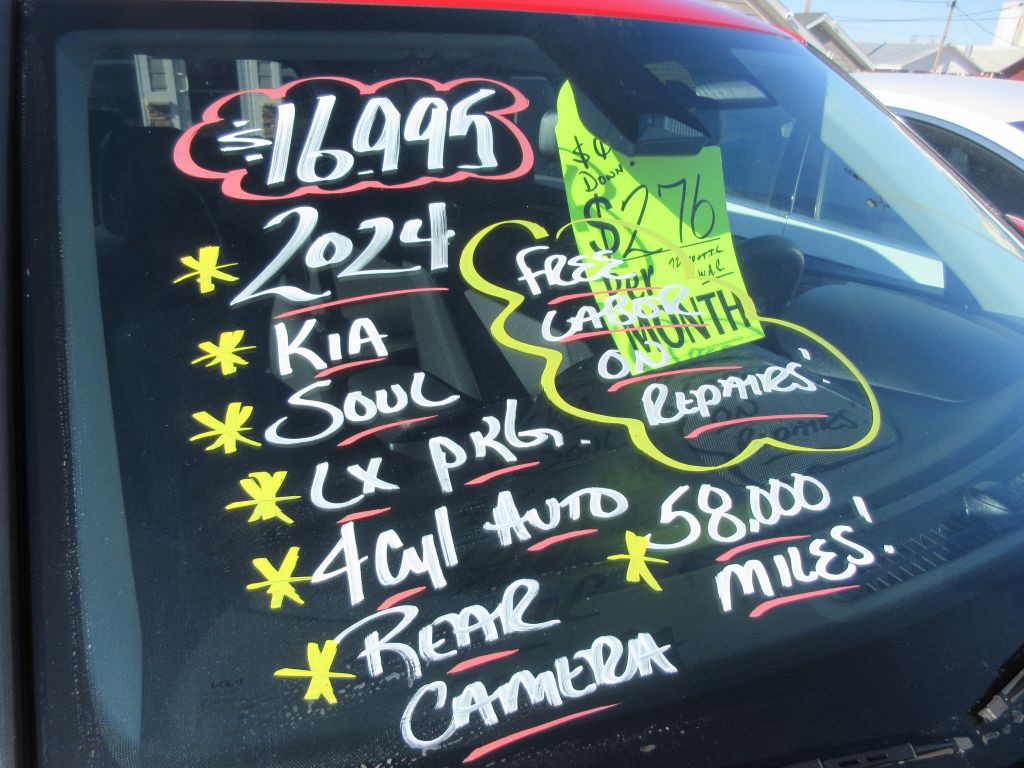 $16,995
2024
KIA
SOUL
LX PKG.
4Cyl AUTO
REAR
CAMERA
FREE
LABOR
ON
REPAIRS!
58,000
MILES!
DOWN
$276
PER
MONTH
W.A.C